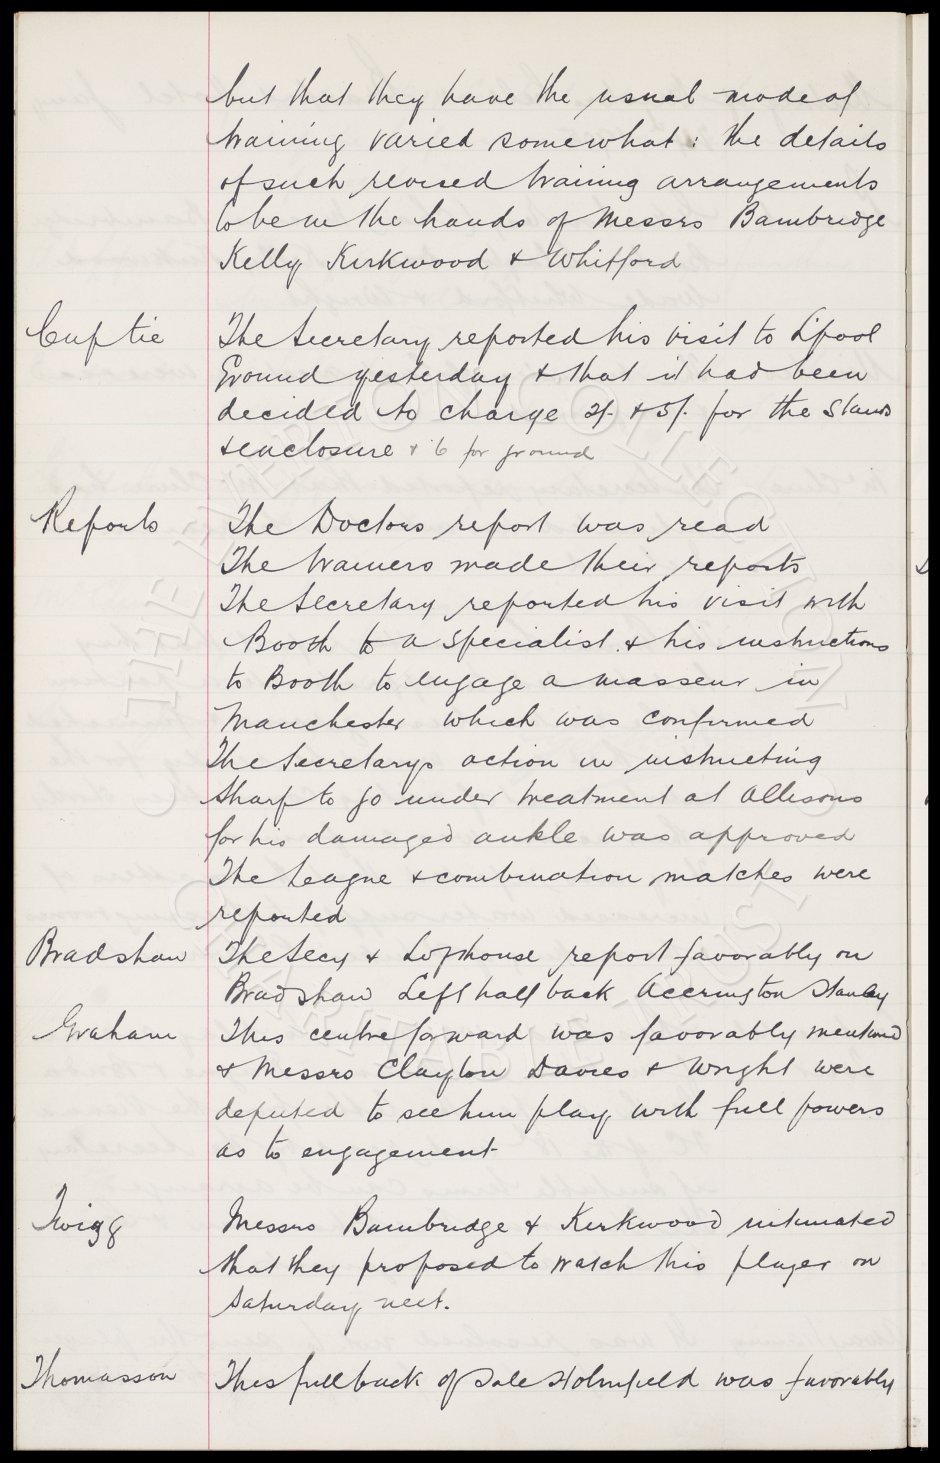 but that they have the usual mode of
training varied somewhat : the details
of such revised training arrangements
to be in the hands of Messrs Bambridge
Kelly Kirkwood & Whitford
Cup tie
The Secretary reported his visit to L'pool
Ground yesterday & that it had been
decided to charge 2/- & 5/- for the Stands
& enclosure & '6 for ground
Reports
The Doctors report was read
The trainers made their reports
The Secretary reported his visit with
Booth to a Specialist. & his instructions
to Booth to engage a masseur in
Manchester which was confirmed
The Secretarys action in instructing
Sharp to go under treatment at Allisons
for his damaged ankle was approved
The League & combination matches were
reported
Bradshaw
The Secy & Lofthouse report favorably on
Bradshaw Left half back Accrington Stanley
Graham
This centre forward was favorably mentioned
& Messrs Clayton Davies & Wright were
deputed to see him play with full powers
as to engagement
Twigg
Messrs Bambridge & Kirkwood intimated
that they proposed to watch this player on
Saturday next.
Thomasson
This full back of Sale Holmfield was favorably